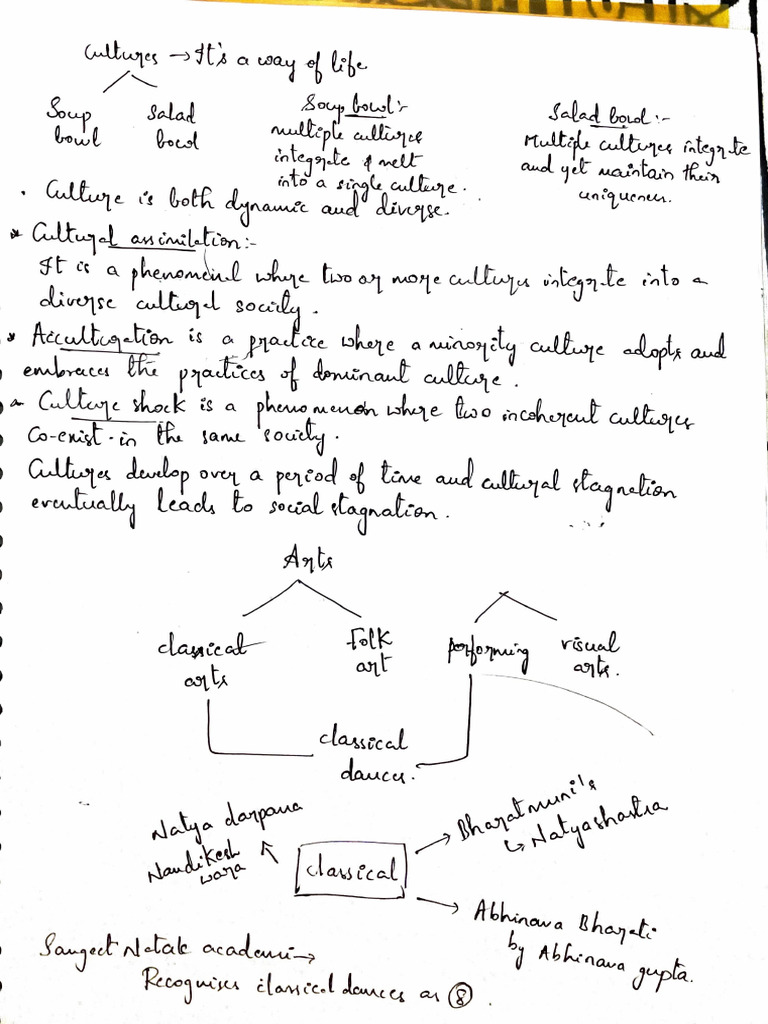 Cultures → It's a way of life
Soup bowl
Salad bowl
Soup bowl:-
multiple cultures
integrate & melt
into a single culture.
Salad bowl:-
Multiple cultures integrate
and yet maintain their
uniqueness.
. Culture is both dynamic and diverse.
* Cultural assimilation:-
It is a phenomenal where two or more cultures integrate into a
diverse cultural society.
* Acculturation is a practice where a minority culture adopts and
embraces the practices of dominant culture.
* Culture shock is a phenomenon where two incoherent cultures
Co-exist in the same society.
Cultures develop over a period of time and cultural stagnation
eventually leads to social stagnation.
Arts
classical
arts
Folk
art
performing
visual
arts.
classical
dances.
Natya darpana
Nandikesh
wara
classical
Bharatmuni's
↳ Natyashastra
Abhinava Bharati
by Abhinava gupta.
Sangeet Natak academi →
Recognises classical dances as 8.